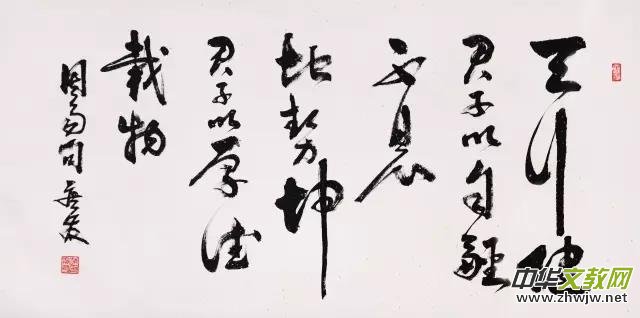 天行健
君子以自強
不息
地勢坤
君子以厚德
載物
周易句
中华文教网
www.zhwjw.net